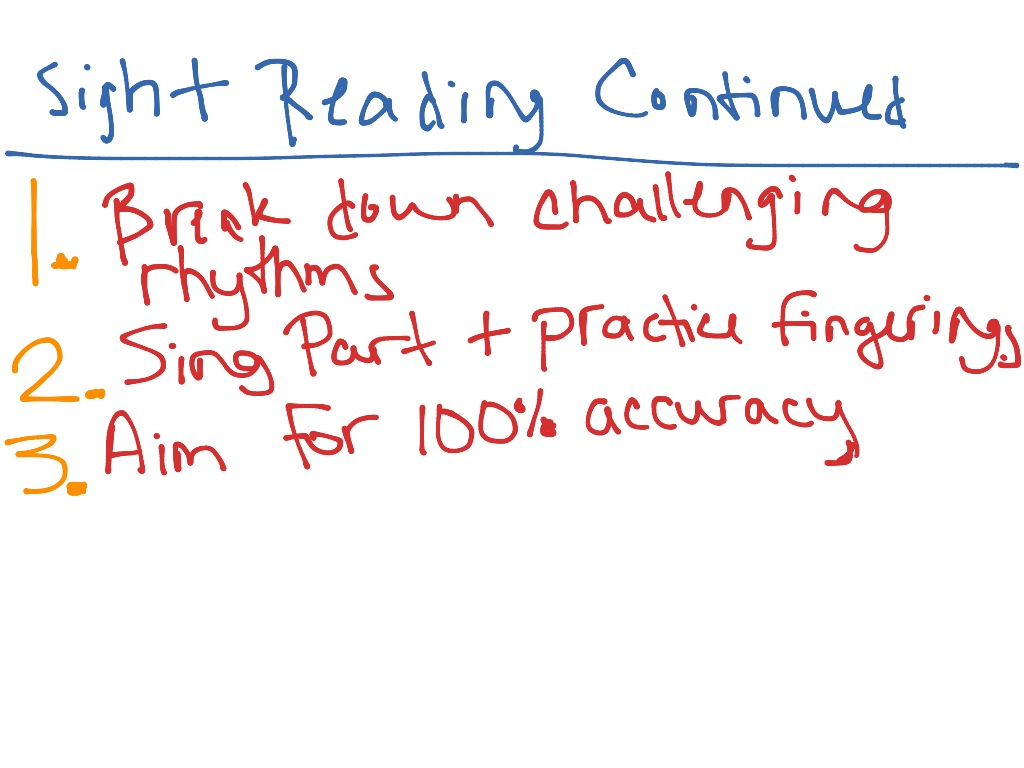 Sight Reading Continued
1. Break down challenging
rhythms
2. Sing Part + practice fingerings
3. Aim for 100% accuracy